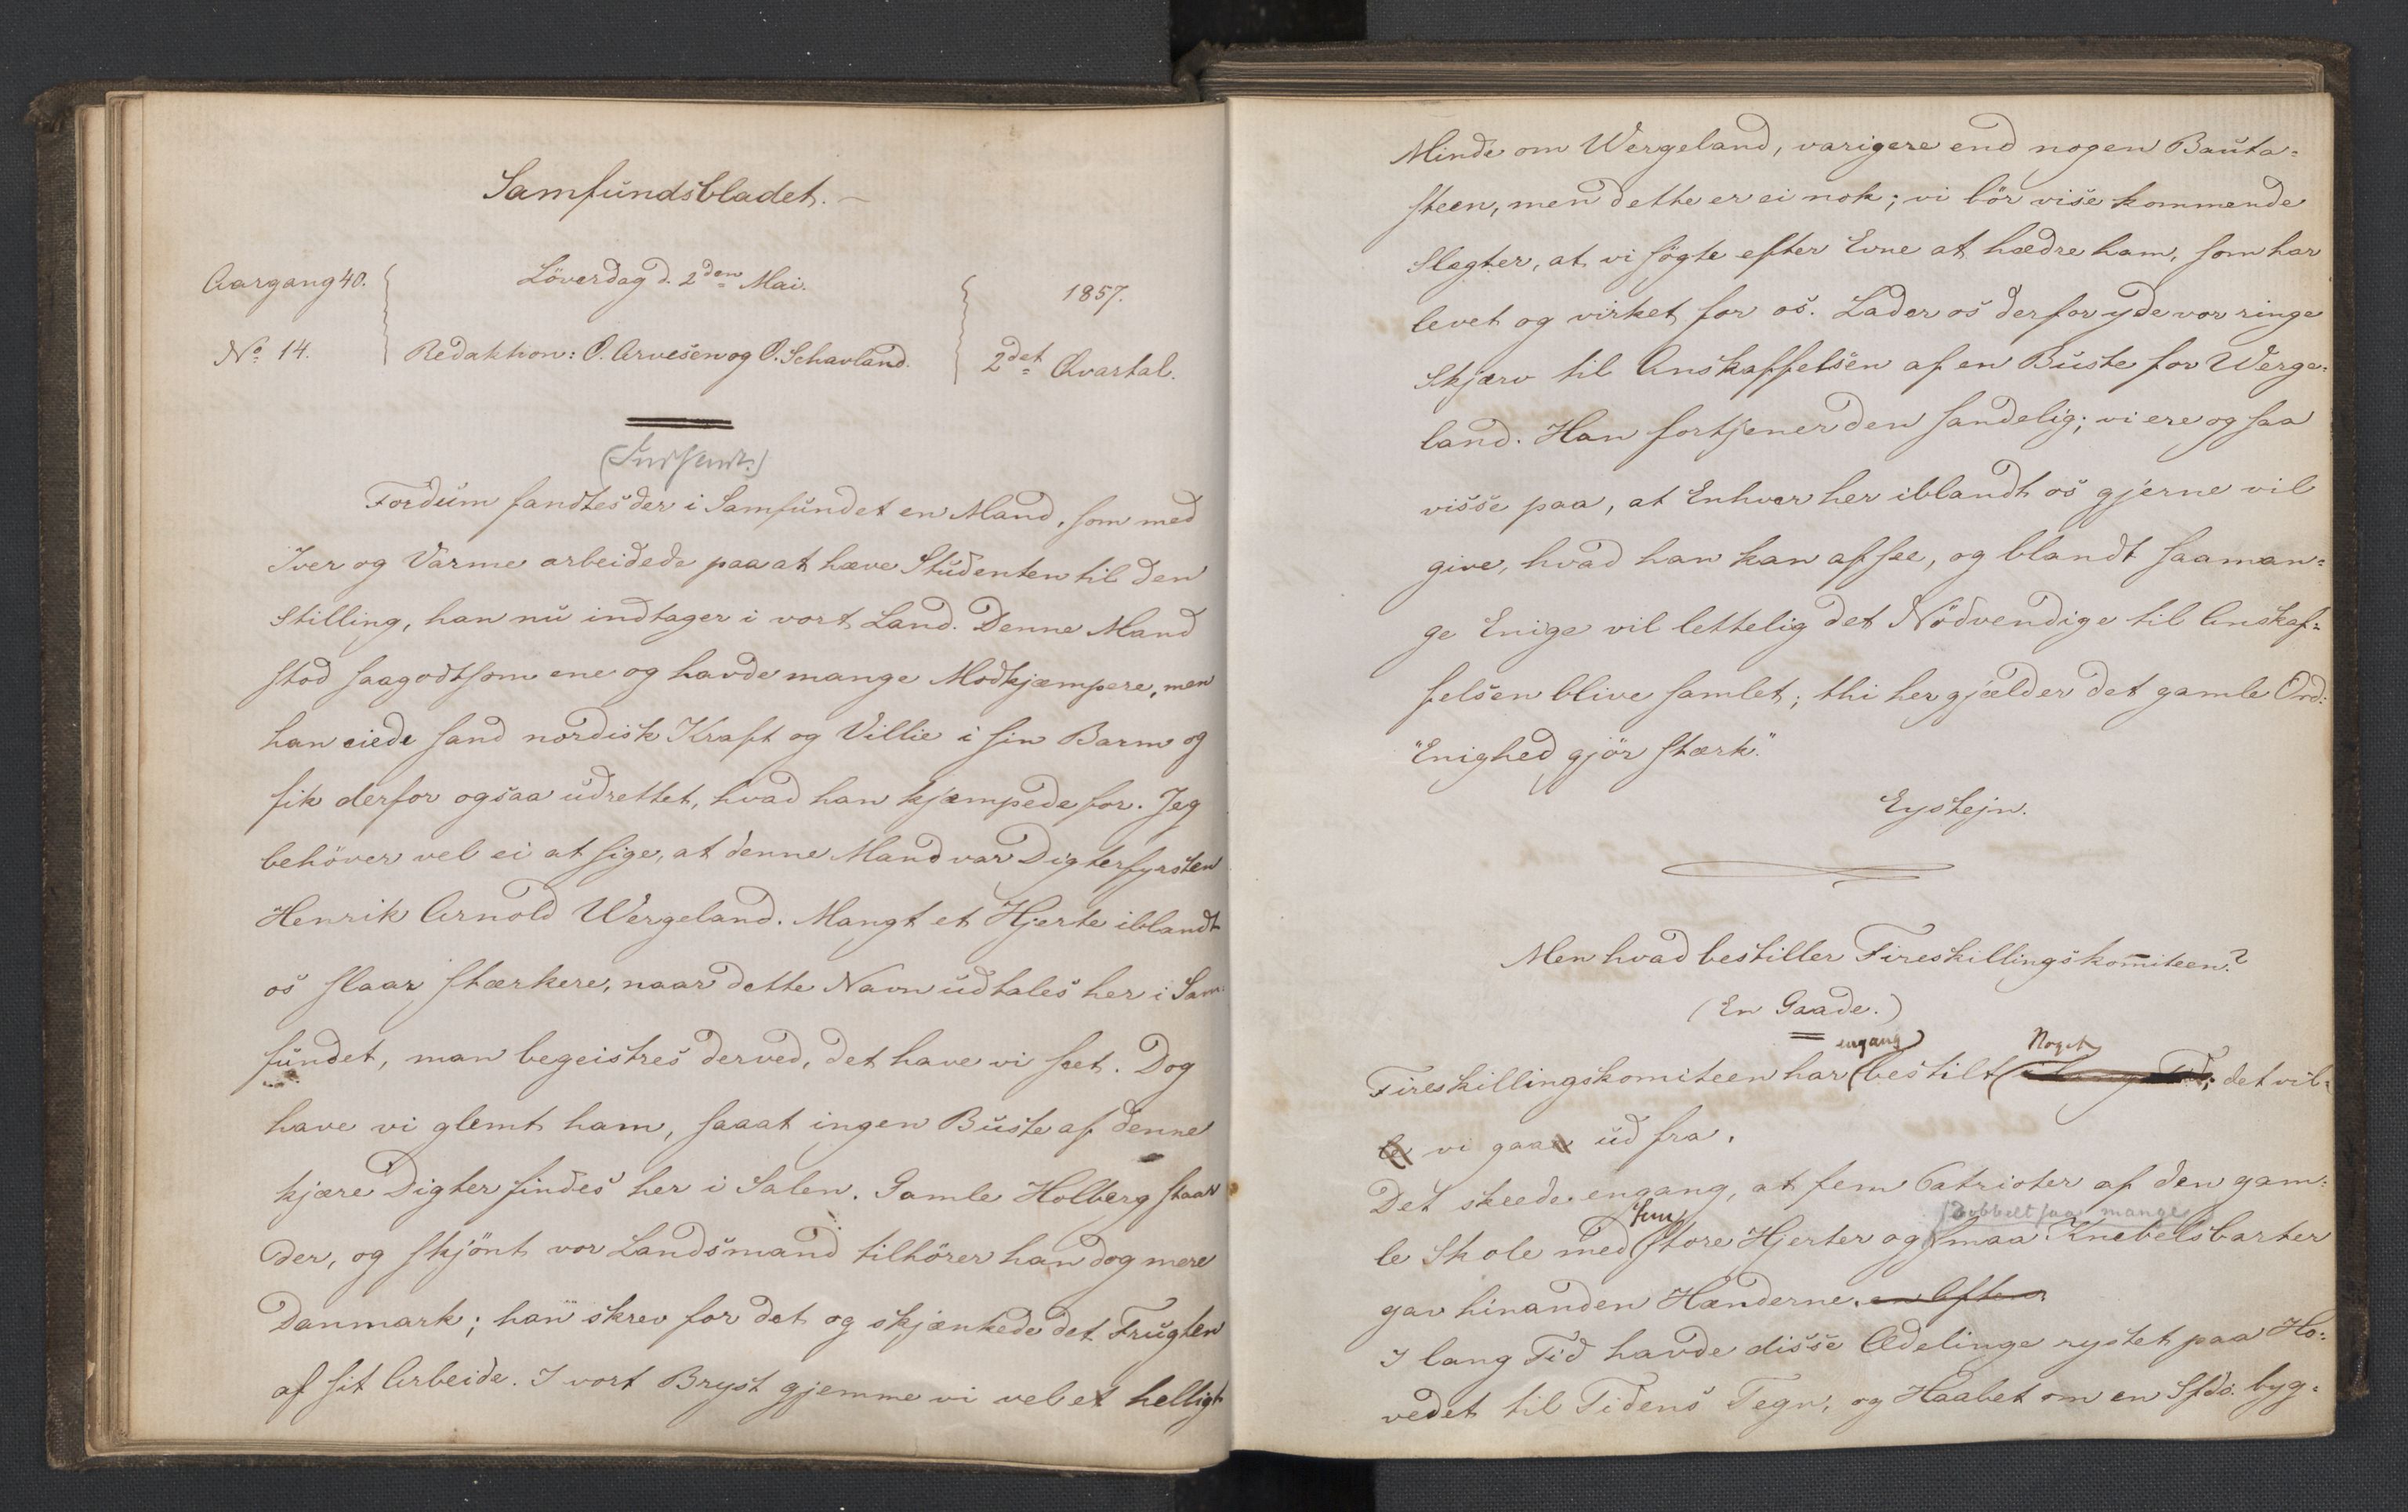 Samfundsbladet.
Aargang 40.
Löverdag d. 2den Mai.
1857.
No 14.
Redaktion: O. Arvesen og O. Schavland.
2det Qvartal.
(Indsendt.)
Fordum fandtes der i Samfundet en Mand, som med
Iver og Varme arbeidede paa at hæve Studenten til den
Stilling, han nu indtager i vort Land. Denne Mand
stod saagodtsom ene og havde mange Modkjæmpere, men
han eiede sand nordisk Kraft og Villie i sin Barm og
fik derfor ogsaa udrettet, hvad han kjæmpede for. Jeg
behöver vel ei at sige, at denne Mand var Digterfyrsten
Henrik Arnold Wergeland. Mangt et Hjerte iblandt
os slaar stærkere, naar dette Navn udtales her i Sam-
fundet, man begeistres derved, det have vi seet. Dog
have vi glemt ham, saaat ingen Buste af denne
kjære Digter findes her i Salen. Gamle Holberg staar
der, og skjönt vor Landsmand tilhörer han dog mere
Danmark; han skrev for det og skjænkede det Frugten
af sit Arbeide. I vort Bryst gjemme vi vel et helligt
Minde om Wergeland, varigere end nogen Bauta-
steen, men dette er ei nok; vi bör vise kommende
Slægter, at vi sögte efter Evne at hædre ham, som har
levet og virket for os. Lader os derfor yde vor ringe
Skjærv til Anskaffelsen af en Buste for Werge-
land. Han fortjener den sandelig; vi ere og saa
visse paa, at Enhver her iblandt os gjerne vil
give, hvad han kan afsee, og blandt saaman-
ge Enige vil lettelig det Nödvendige til Anskaf-
felsen blive samlet; thi her gjælder det gamle Ord:
"Enighed gjör stærk."
Eystejn.
Men hvad bestiller Fireskillingskomiteen?
(En Gaade.)
engang Noget
Fireskillingskomiteen har bestilt Tid; det vil-
le vi gaa ud fra.
Det skeede engang, at fem Patrioter af den gam-
fem dobbelt saa mange
le Skole med store Hjerter og smaa Knebelsbarter
gav hinanden Hænderne. en Aften.
I lang Tid havde disse Ædelinge rystet paa Ho-
vedet til Tidens Tegn, og Haabet om en Sfds. byg-